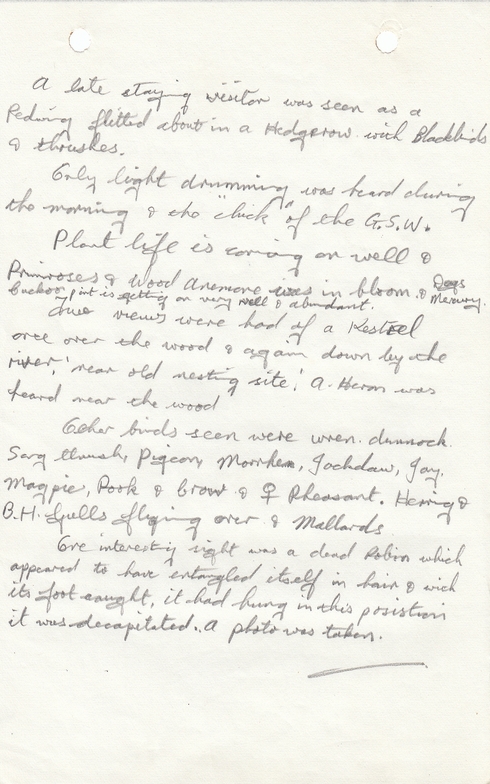 A late staying visitor was seen as a
Redwing flitted about in a Hedgerow with Blackbirds
& thrushes.
Only light drumming was heard during
the morning & the "chick" of the G.S.W.
Plant life is coming on well &
Primroses & Wood Anemone was in bloom. & Dogs Mercury.
Cuckoo Pint is getting on very well & abundant.
views were had of a Kestrel
once over the wood & again down by the
river, 'near old nesting site'. A Heron was
heard near the wood
Other birds seen were wren. dunnock.
Song thrush, Pigeon, Moorhen, Jackdaw, Jay,
Magpie, Rook & Crow & ♀ Pheasant. Herring &
B.H. Gulls flying over & Mallards
One interesting sight was a dead Robin which
appeared to have entangled itself in hair & with
its foot caught, it had hung in this posistion
it was decapitated. A photo was taken.